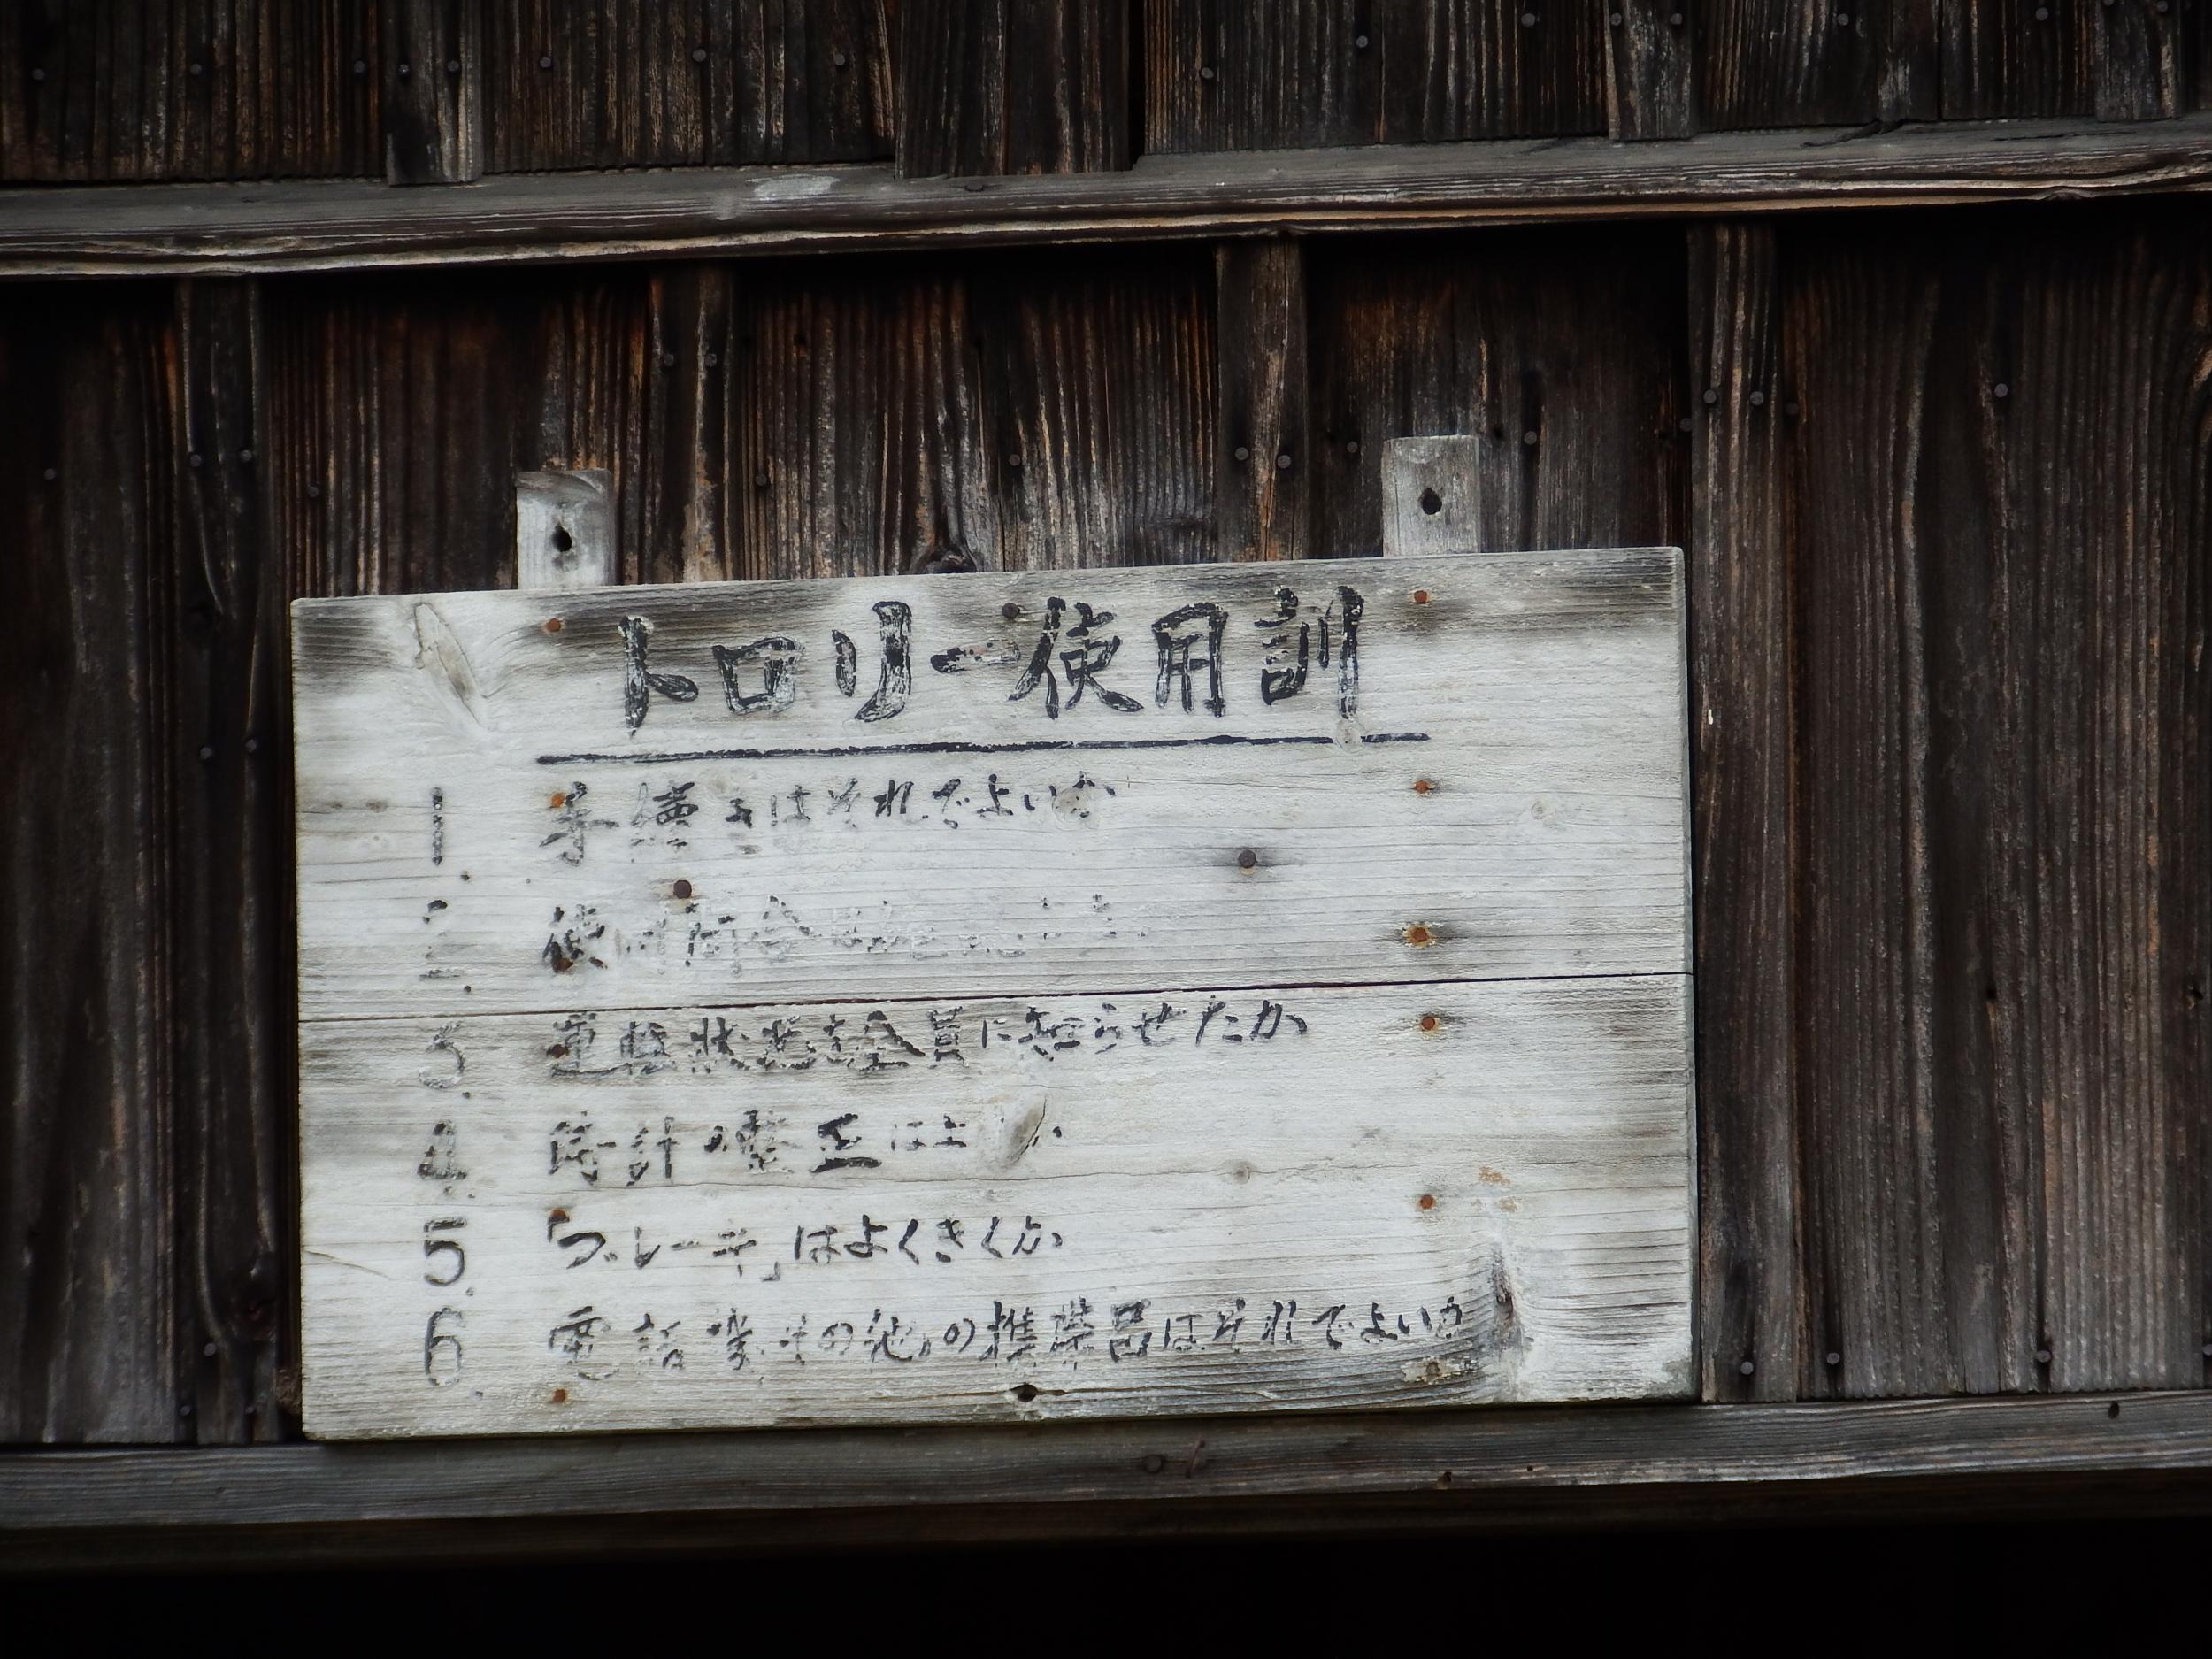 トロリー使用訓
1. 手続きはそれでよいか
2. 使用間合は
3. 運転状態を全員に知らせたか
4. 時計の整正はよ
5. 「ブレーキ」はよくきくか
6. 電話機その他の携帯品はそれでよいか